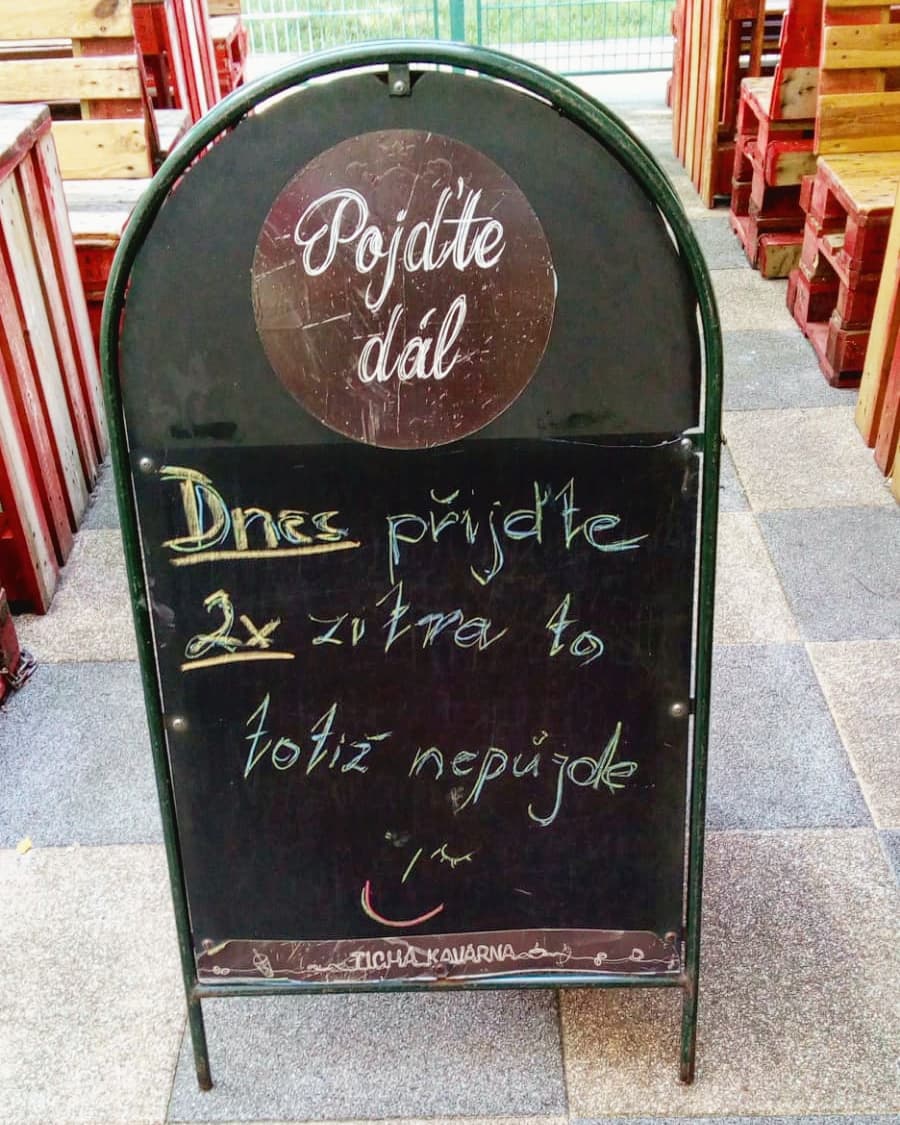 Pojďte
dál
Dnes přijďte
2x zítra to
totiž nepůjde
TICHÁ KAVÁRNA